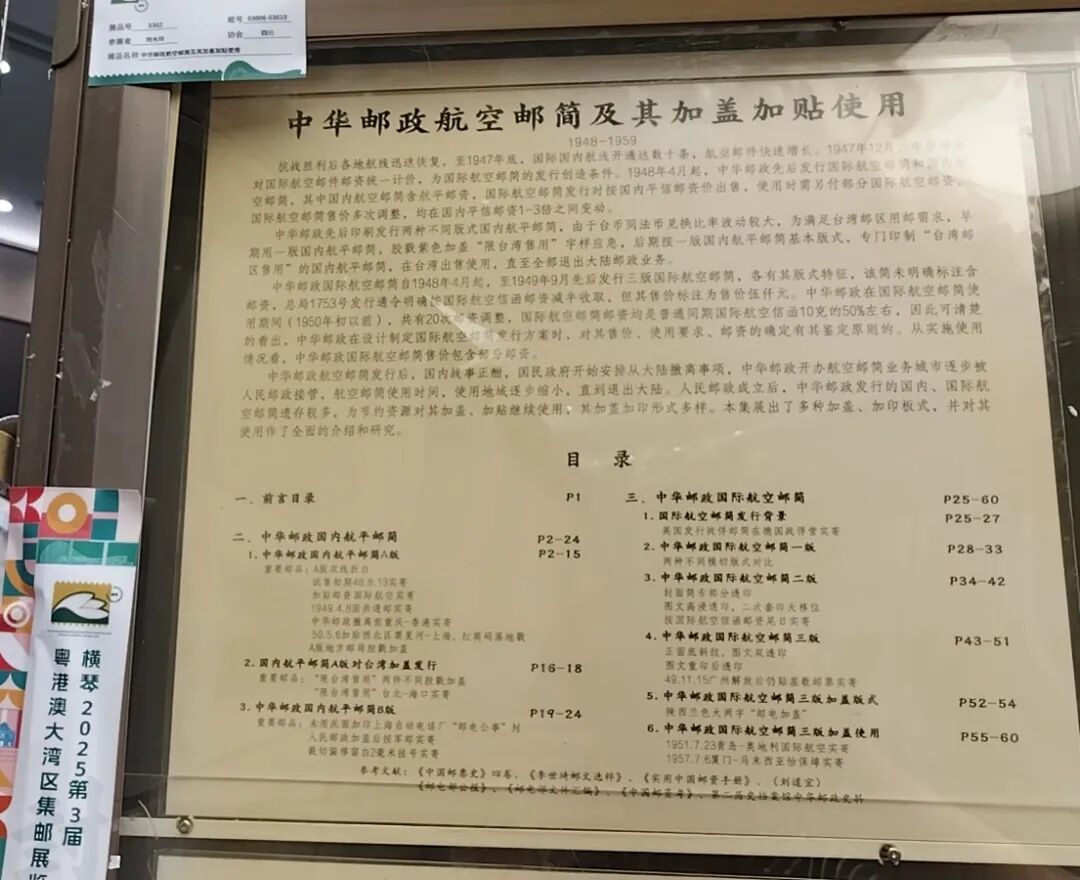 展品号 0302
框号 03006-03010
参展者
协会 四川
展品名称 中华邮政航空邮简及其加盖加贴使用
中华邮政航空邮简及其加盖加贴使用
1948-1959
抗战胜利后各地航线迅速恢复，至1947年底，国际国内航线开通达数十条，航空邮件快速增长。1947年12月，中华邮政
对国际航空邮件邮资统一计价，为国际航空邮简的发行创造条件。1948年4月起，中华邮政先后发行国际航空邮简和国内航
空邮简，其中国内航空邮简含航平邮资，国际航空邮简发行时按国内平信邮资价出售，使用时需另付部分国际航空邮资，
国际航空邮简售价多次调整，均在国内平信邮资1-3倍之间变动。
中华邮政先后印刷发行两种不同版式国内航平邮简，由于台币同法币兑换比率波动较大，为满足台湾邮区用邮需求，早
期用一版国内航平邮简，胶戳紫色加盖“限台湾售用”字样应急，后期按一版国内航平邮简基本版式，专门印制“台湾邮
区售用”的国内航平邮简，在台湾出售使用，直至全部退出大陆邮政业务。
中华邮政国际航空邮简自1948年4月起，至1949年9月先后发行三版国际航空邮简，各有其版式特征，该简未明确标注含
邮资，总局1753号发行通令明确按国际航空信函邮资减半收取，但其售价标注为售价伍仟元。中华邮政在国际航空邮简使
用期间（1950年初以前），共有20次邮资调整，国际航空邮简邮资均是普通同期国际航空信函10克的50%左右，因此可清楚
的看出，中华邮政在设计制定国际航空邮简发行方案时，对其售价、使用要求、邮资的确定有其鉴定原则的。从实施使用
情况看，中华邮政国际航空邮简售价包含部分邮资。
中华邮政航空邮简发行后，国内战事正酣，国民政府开始安排从大陆撤离事项，中华邮政开办航空邮简业务城市逐步被
人民邮政接管，航空邮简使用时间，使用地域逐步缩小，直到退出大陆。人民邮政成立后，中华邮政发行的国内、国际航
空邮简遗存较多，为节约资源对其加盖、加贴继续使用，其加盖加印形式多样。本集展出了多种加盖、加印板式，并对其
使用作了全面的介绍和研究。
目 录
一、前言目录 P1
二、中华邮政国内航平邮简 P2-24
1.中华邮政国内航平邮简A版 P2-15
重要邮品：A版足线折白
试售初期48.9.13实寄
加贴邮资国际航空实寄
1949.4.8国共通邮实寄
中华邮政撤离前重庆-香港实寄
50.5.6加贴西北区票夏河-上海，红商码落地戳
A版地方邮局胶戳加盖
2.国内航平邮简A版对台湾加盖发行 P16-18
重要邮品：“限台湾售用”两件不同胶戳加盖
“限台湾售用”台北-海口实寄
3.中华邮政国内航平邮简B版 P19-24
重要邮品：未用反面加印上海自动电话厂“邮电公事”封
人民邮政加盖后按军邮实寄
裁切偏移留白2毫米挂号实寄
三、中华邮政国际航空邮简 P25-60
1.国际航空邮简发行背景 P25-27
英国发行战俘邮简在德国战俘营实寄
2.中华邮政国际航空邮简一版 P28-33
两种不同模切版式对比
3.中华邮政国际航空邮简二版 P34-42
封面简舌部分透印
图文高浸透印，二次套印大移位
按国际航空信函邮资尾日实寄
4.中华邮政国际航空邮简三版 P43-51
正面底斜纹，图文双透印
图文重印后透印
49.11.15广州解放后仍贴基数邮票实寄
5.中华邮政国际航空邮简三版加盖版式 P52-54
陕西兰色大两字“邮电加盖”
6.中华邮政国际航空邮简三版加盖使用 P55-60
1951.7.23青岛-奥地利国际航空实寄
1957.7.6厦门-马来西亚怡保埠实寄
参考文献：《中国邮票史》四卷、《李世琦邮文选粹》、《实用中国邮资手册》、（刘道宜）
《邮电部公报》、《邮电部文件汇编》、《中国邮资考》、第二历史档案馆中华邮政史料
横琴2025第3届
粤港澳大湾区集邮展览